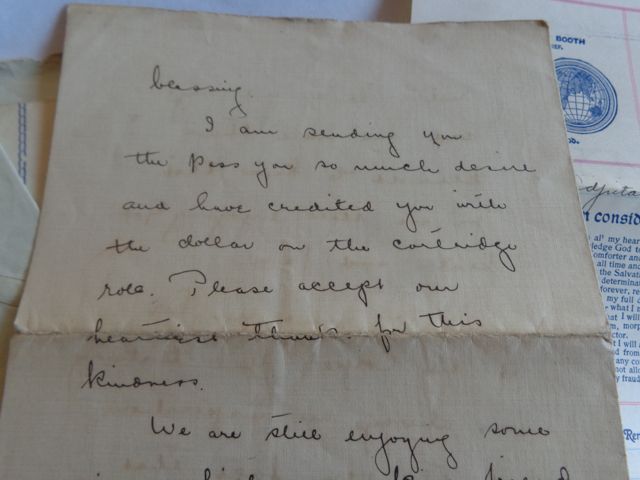 blessing.
I am sending you
the pass you so much desire
and have credited you with
the dollar on the cartridge
role. Please accept our
heartiest thanks for this
kindness.
We are still enjoying some
friend
BOOTH
djuta
consid
al' my hear
ledge God to
omforter and
all time and
the Salvat
determinat
forever, re
my full
what I
that I will
m, mor
ctor.
t I will a
d from
any co
not allo
y fraud